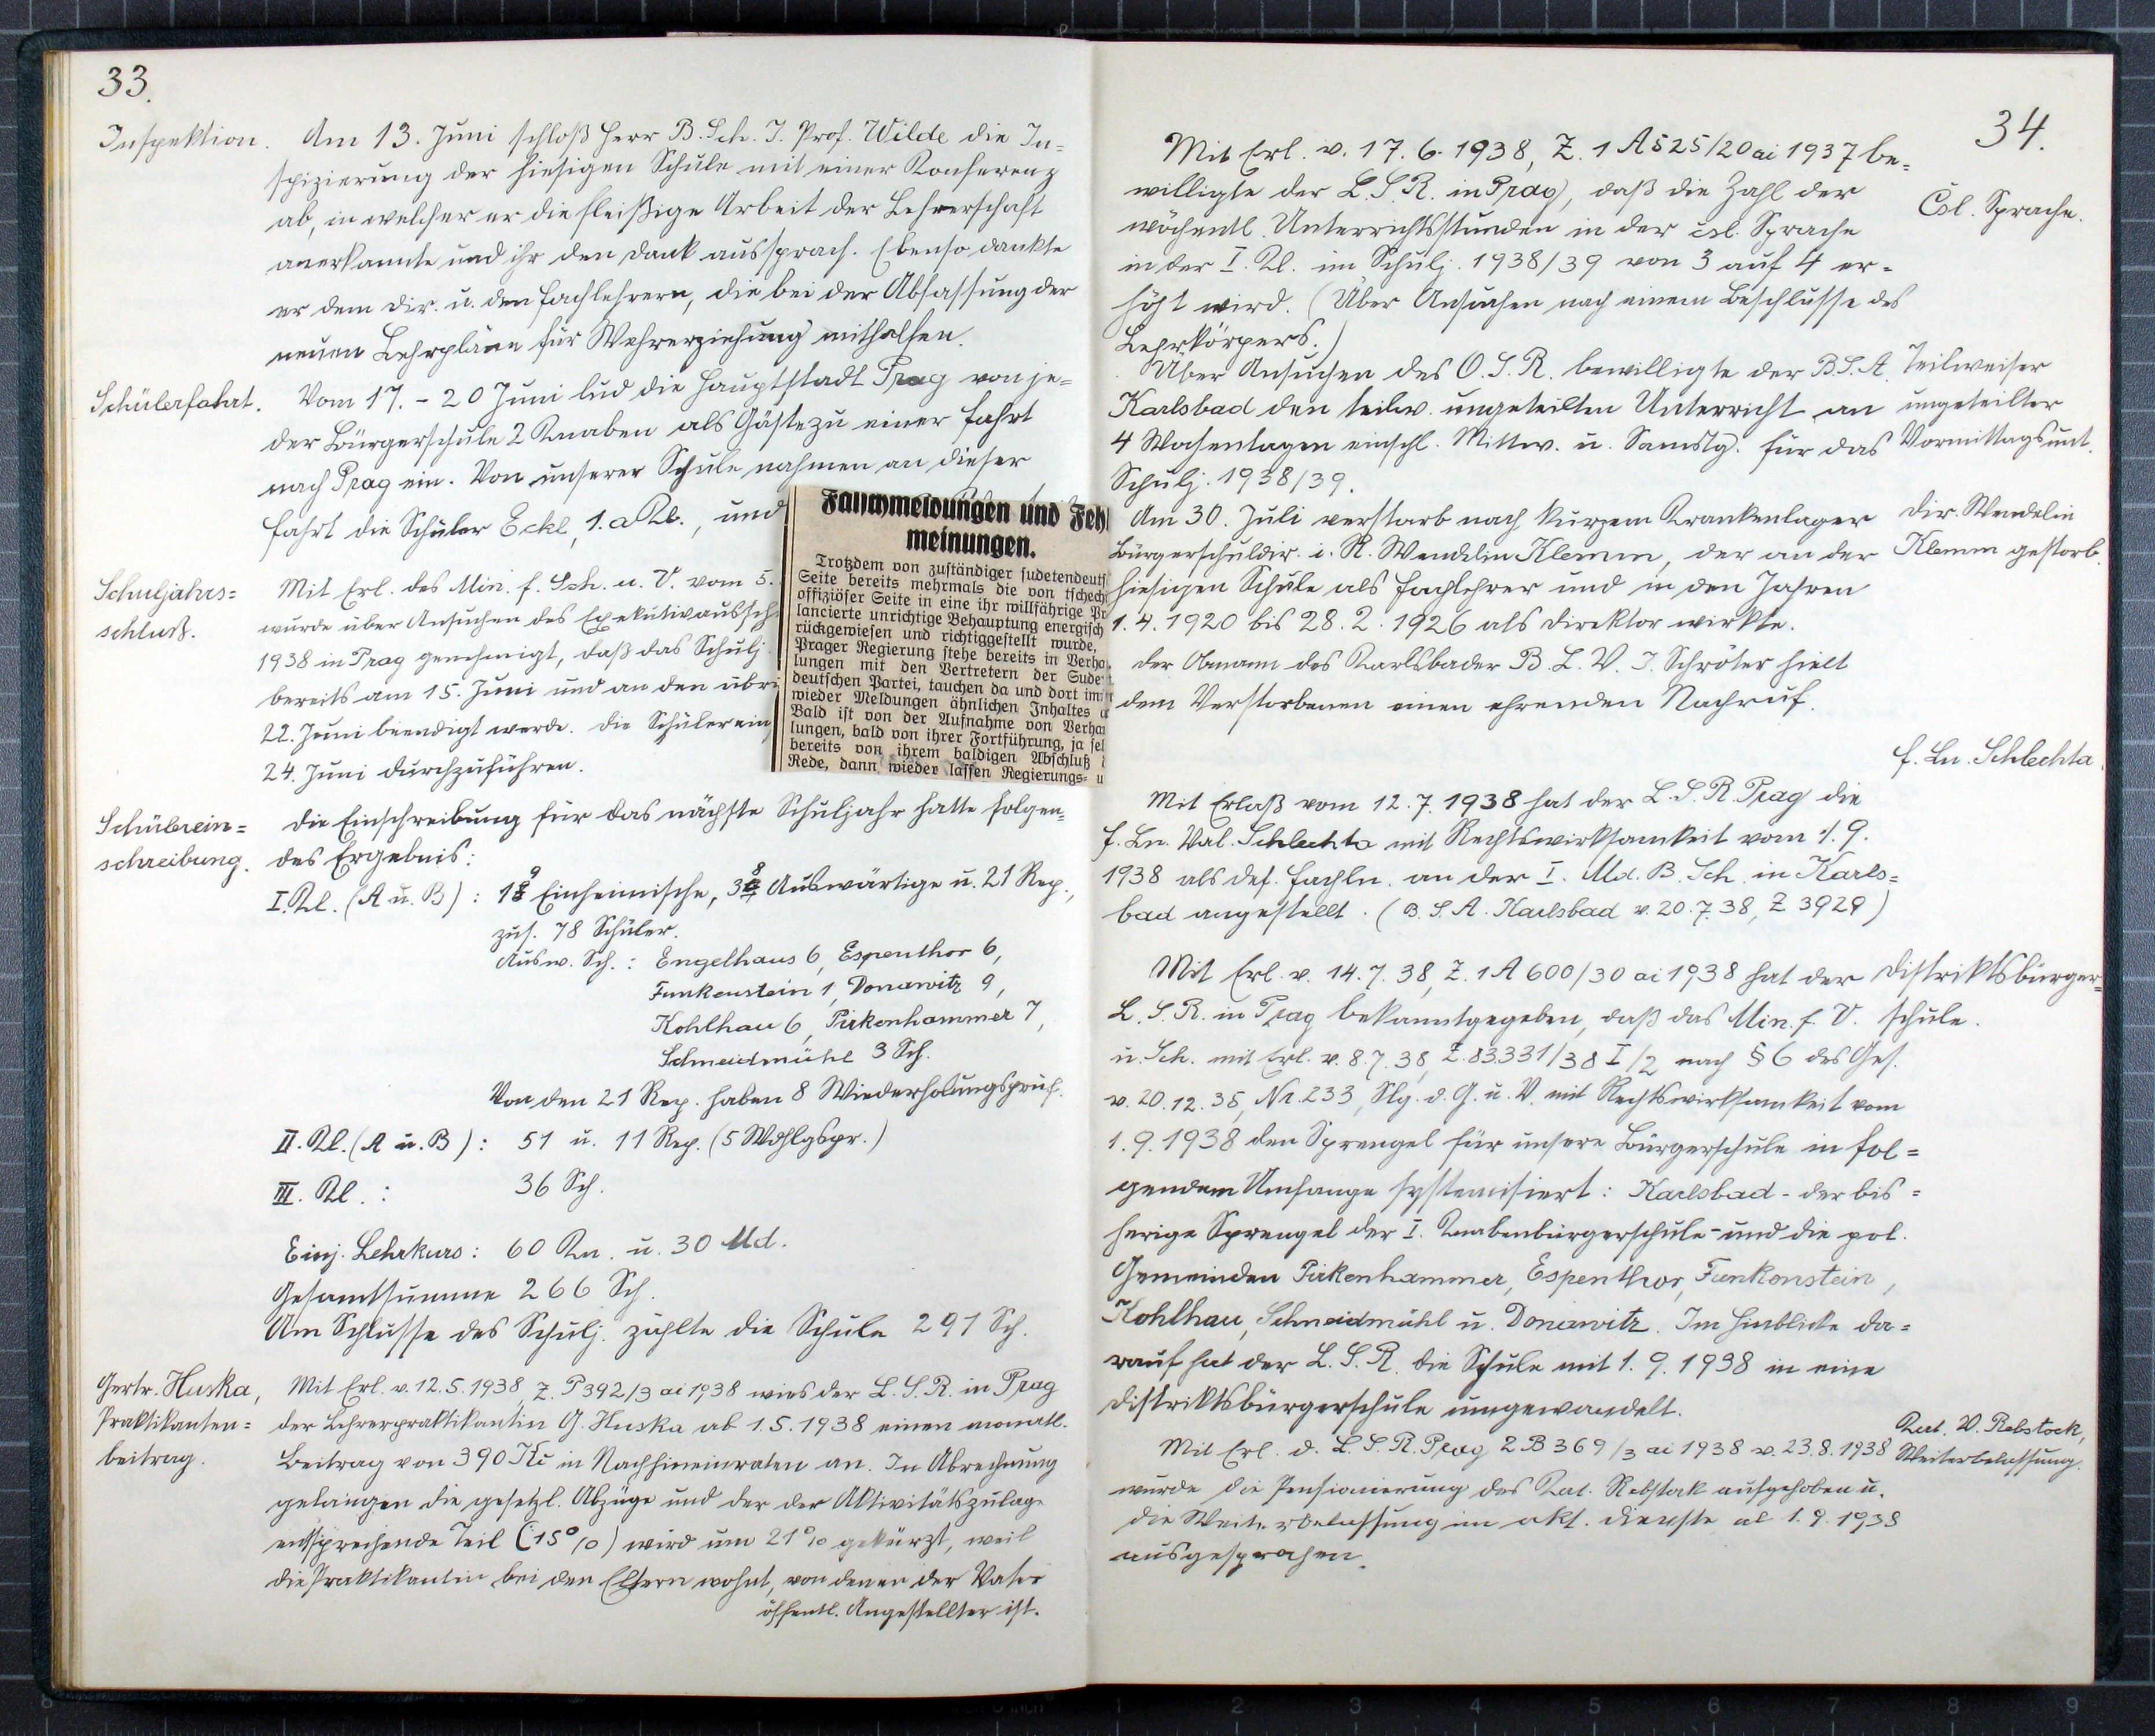 33.
Inspektion. Am 13. Juni schloß Herr B. Sch. I. Prof. Wilde die In=
spizierung der hiesigen Schule mit einer Konferenz
ab, in welcher er die fleißige Arbeit der Lehrerschaft
anerkannte und ihr den Dank aussprach. Ebenso dankte
er dem Dir. u. den Fachlehrern, die bei der Abfassung der
neuen Lehrpläne für Wehrerziehung mithalfen.
Schülerfahrt. Vom 17. - 20 Juni lud die Hauptstadt Prag von je=
der Bürgerschule 2 Knaben als Gäste zu einer Fahrt
nach Prag ein. Von unserer Schule nahmen an dieser
Fahrt die Schüler Eckl, 1. a Kl., und
Schuljahrs= Mit Erl. des Min. f. Sch. u. V. vom 5.
schluß. wurde über Ansuchen des Exekutivaussch
1938 in Prag genehmigt, daß das Schulj.
bereits am 15. Juni und an den übri
22. Juni beendigt werde. Die Schülerein
24. Juni durchzuführen.
Falschmeldungen und Feh
meinungen.
Trotzdem von zuständiger sudetendeuts
Seite bereits mehrmals die von tschech
offiziöser Seite in eine ihr willfährige Pr
lancierte unrichtige Behauptung energisch
rückgewiesen und richtiggestellt wurde,
Prager Regierung stehe bereits in Verha
lungen mit den Vertretern der Sude
deutschen Partei, tauchen da und dort im
wieder Meldungen ähnlichen Inhaltes a
Bald ist von der Aufnahme von Verhan
lungen, bald von ihrer Fortführung, ja sel
bereits von ihrem baldigen Abschluß
Rede, dann wieder lassen Regierungs= u
Schülerein= Die Einschreibung für das nächste Schuljahr hatte folgen=
schreibung. des Ergebnis:
I. Kl. (A u. B) : 19 Einheimische, 38 Auswärtige u. 21 Rep.,
zus. 78 Schüler.
Ausw. Sch. : Engelhaus 6, Espenthor 6,
Funkenstein 1, Donawitz 9,
Kohlhau 6, Pirkenhammer 7,
Schneidmühl 3 Sch.
Von den 21 Rep. haben 8 Wiederholungsprüf.
II. Kl. (A u. B) : 51 u. 11 Rep. (5 Wdhlgspr.)
III. Kl. : 36 Sch.
Einj. Lehrkurs : 60 Kn. u. 30 Md.
Gesamtsumme 266 Sch.
Am Schlusse des Schulj. zählte die Schule 291 Sch.
Gertr. Huska, Mit Erl. v. 12. 5. 1938, Z. P 392/3 ai 1938 wies der L. S. R. in Prag
Praktikanten= der Lehrerpraktikantin G. Huska ab 1. 5. 1938 einen monatl.
beitrag. Beitrag von 390 Kč in Nachhineinraten an. In Abrechnung
gelangen die gesetzl. Abzüge und der der Aktivitätszulage
entsprechende Teil (15%) wird um 21% gekürzt, weil
die Praktikantin bei den Eltern wohnt, von denen der Vater
öffentl. Angestellter ist.
34.
Mit Erl. v. 17. 6. 1938, Z. 1 A 525/20 ai 1937 be=
willigte der L. S. R. in Prag, daß die Zahl der
Čsl. Sprache.
wöchentl. Unterrichtsstunden in der čsl. Sprache
in der I. Kl. im Schulj. 1938/39 von 3 auf 4 er=
höht wird. (Über Ansuchen nach einem Beschlusse des
Lehrkörpers.)
Über Ansuchen des O. S. R. bewilligte der B. S. A. Teilweiser
Karlsbad den teilw. ungeteilten Unterricht an ungeteilter
4 Wochentagen einschl. Mittw. u. Samstg. für das Vormittagsunt.
Schulj. 1938/39.
Am 30. Juli verstarb nach kurzem Krankenlager Dir. Wendelin
Bürgerschuldir. i. R. Wendelin Klemm, der an der Klemm gestorb.
hiesigen Schule als Fachlehrer und in den Jahren
1. 4. 1920 bis 28. 2. 1926 als Direktor wirkte.
Der Obmann des Karlsbader B. L. V. J. Schröter hielt
dem Verstorbenen einen ehrenden Nachruf.
F. Ln. Schlechta.
Mit Erlaß vom 12. 7. 1938 hat der L. S. R. Prag die
F. Ln. Val. Schlechta mit Rechtswirksamkeit vom 1. 9.
1938 als def. Fachln. an der I. Md. B. Sch. in Karls=
bad angestellt. (B. S. A. Karlsbad v. 20. 7. 38, Z 3929)
Mit Erl. v. 14. 7. 38, Z. 1 A 600/30 ai 1938 hat der Distriktsbürger=
L. S. R. in Prag bekanntgegeben, daß das Min. f. V. schule.
u. Sch. mit Erl. v. 8. 7. 38, Z. 83.331/38 I/2 nach § 6 des Ges.
v. 20. 12. 35, Nr. 233, Slg. d. G. u. V. mit Rechtswirksamkeit vom
1. 9. 1938 den Sprengel für unsere Bürgerschule in fol=
gendem Umfange systemisiert : Karlsbad - der bis=
herige Sprengel der I. Knabenbürgerschule - und die pol.
Gemeinden Pirkenhammer, Espenthor, Funkenstein,
Kohlhau, Schneidmühl u. Donawitz. Im Hinblicke da=
rauf hat der L. S. R. die Schule mit 1. 9. 1938 in eine
Distriktsbürgerschule umgewandelt.
Kat. V. Rebstock,
Mit Erl. d. L. S. R. Prag 2 B 369/3 ai 1938 v. 23. 8. 1938 Weiterbelassung.
wurde die Pensionierung des Kat. Rebstock aufgehoben u.
die Weiterbelassung im akt. Dienste ab 1. 9. 1938
ausgesprochen.